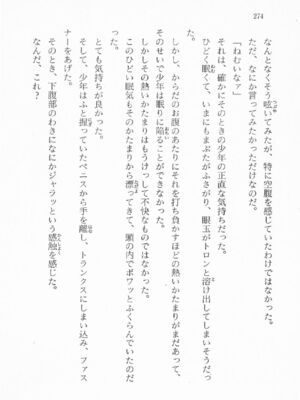 274
なんとなくそう呟いてみたが、特に空腹を感じていたわけではなかった。
ただ、なにか言ってみたかっただけなのだ。
「ねむいなァ」
それは、確かにそのときの少年の正直な気持ちだった。
ひどく眠くて、いまにもまぶたがふさがり、眼玉がトロンと溶け出してしまいそうだっ
た。
しかし、からだのお腹のあたりにそれを打ち負かすほどの熱いかたまりがまだあって、
そのせいで少年は眠りに陥ることができないでいた。
しかしその熱いかたまりはもうけっして不快なものではなかった。
このひどい眠気もそのかたまりから漂ってきて、頭の内でボワッとふくらんでいたのだ
った。
とても気持ちが良かった。
そして、少年はふと握っていたペニスから手を離し、トランクスにしまい込み、ファス
ナーをあげた。
そのとき、下腹部のわきになにかジャラッという感触を感じた。
なんだ、これ?